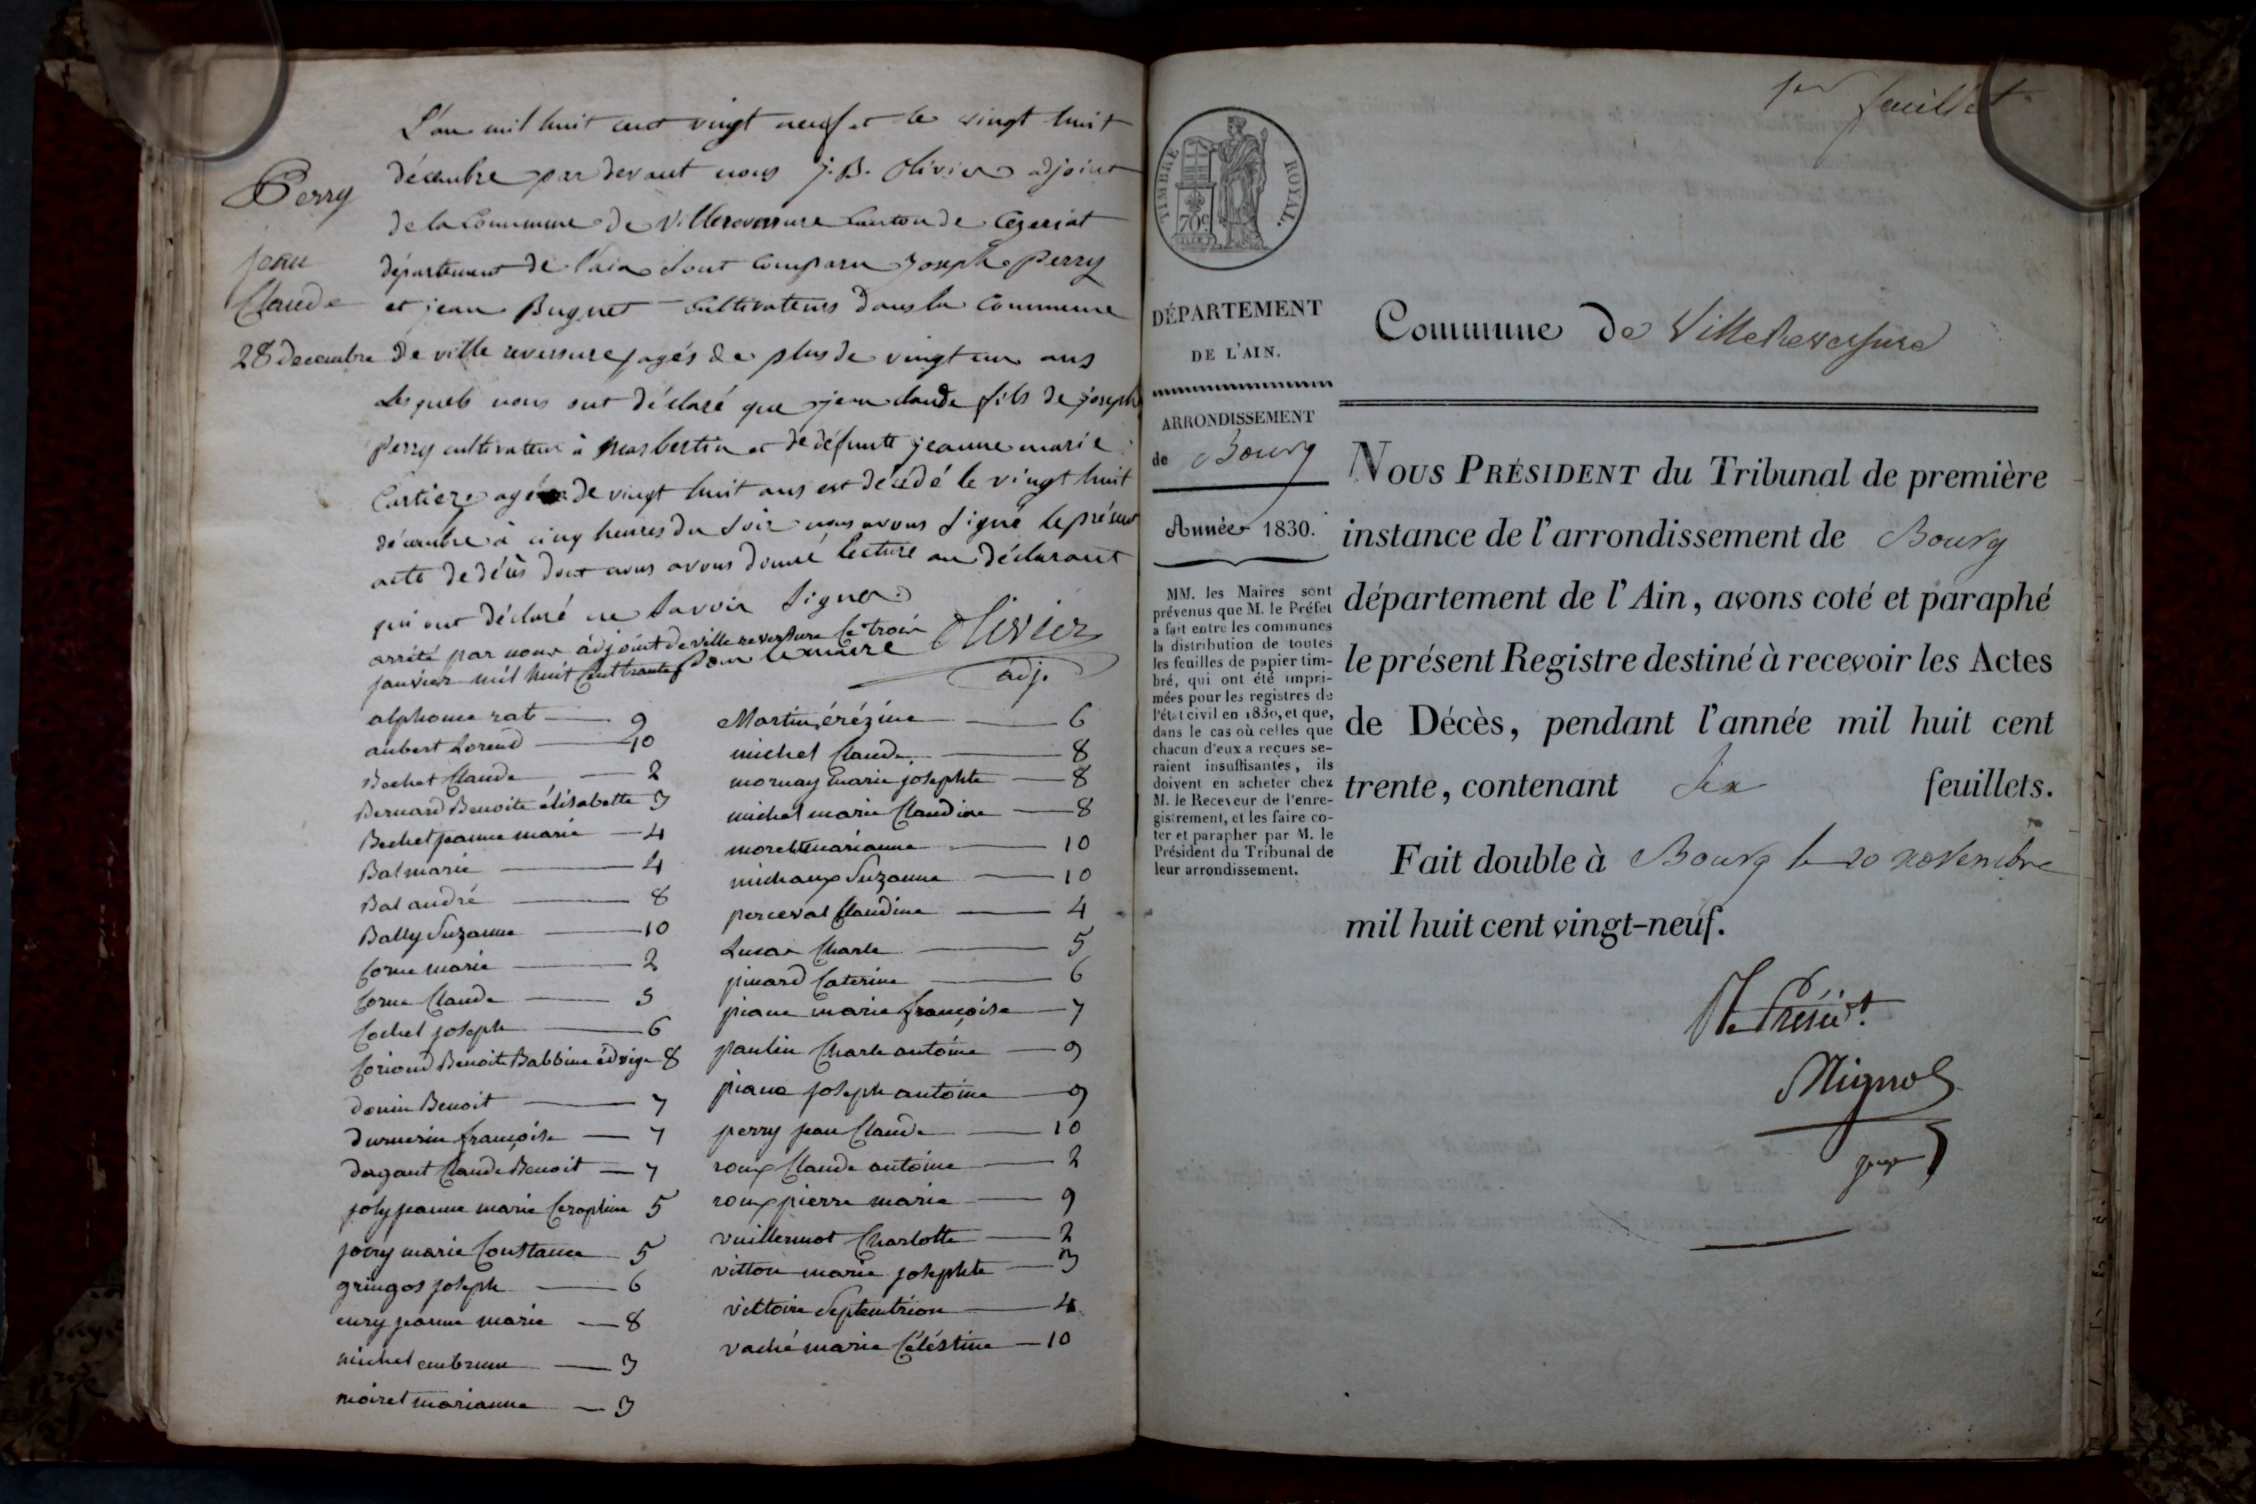 Perry
jean
Claude
28 decembre
L'an mil huit cent vingt neuf et le vingt huit
décembre par devant nous J. B. Olivier adjoint
de la Commune de Villereversure canton de Ceyseriat
département de l'ain sont comparu Joseph Perry
et jean Buguet cultivateurs dans la Commune
de ville reversure agés de plus de vingt un ans
lesquels nous ont déclaré que jean claude fils de joseph
Perry cultivateur à masbertin et de défunte jeanne marie
Cartier agé de vingt huit ans est décédé le vingt huit
décembre à cinq heures du soir nous avons signé le présent
acte de décès dont nous avons donné lecture au déclarant
qui ont déclaré ne savoir signer
arrété par nous adjoint de ville reversure le trois
janvier mil huit cent trente pour le maire
Olivier
adj.
alphonce rat 9
aubert Lorend 10
Bechet Claude 2
Bernard Benoite élisabette 3
Bechet jeanne marie 4
Bal marie 4
Bal andré 8
Bally Suzanne 10
Corne marie 2
Corne Claude 5
Cochet joseph 6
Coriond Benoite Babbine édvige 8
donin Benoit 7
dumerin françoise 7
dagant Claude Benoit 7
joly jeanne marie Ceraphine 5
jovry marie Constance 5
gringos joseph 6
cury jeanne marie 8
michel 3
moiret marianne 3
Martin érézine 6
michel Claude 8
mornay marie josephte 8
michel marie Claudine 8
moret marianne 10
michaux Suzanne 10
perceval Claudine 4
Charle 5
pinard Caterine 6
piane marie françoise 7
paulin Charle antoine 9
piana joseph antoine 9
perry jean Claude 10
roux Claude antoine 2
roux pierre marie 9
vuillermot Charlotte 2
vitton marie josephte 3
vittoire Septentrion 4
vaché marie Céléstine 10
1er feuillet
TIMBRE ROYAL.
70c
DÉPARTEMENT
DE L'AIN.
ARRONDISSEMENT
de Bourg
Année 1830.
MM. les Maires sont
prévenus que M. le Préfet
a fait entre les communes
la distribution de toutes
les feuilles de papier tim-
bré, qui ont été impri-
mées pour les registres de
l'état civil en 1830, et que,
dans le cas où celles que
chacun d'eux a reçues se-
raient insuffisantes, ils
doivent en acheter chez
M. le Receveur de l'enre-
gistrement, et les faire co-
ter et parapher par M. le
Président du Tribunal de
leur arrondissement.
Commune de Villereversure
NOUS PRÉSIDENT du Tribunal de première
instance de l'arrondissement de Bourg
département de l'Ain, avons coté et paraphé
le présent Registre destiné à recevoir les Actes
de Décès, pendant l'année mil huit cent
trente, contenant six feuillets.
Fait double à Bourg le 20 novembre
mil huit cent vingt-neuf.
Le Présidt.